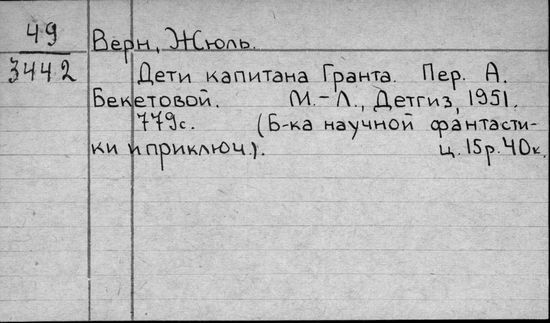 49
3442
Верн, Жюль.
Дети капитана Гранта. Пер. А.
Бекетовой. М.-Л., Детгиз, 1951.
779с. (Б-ка научной фантасти-
ки и приключ.). ц. 15р. 40к.